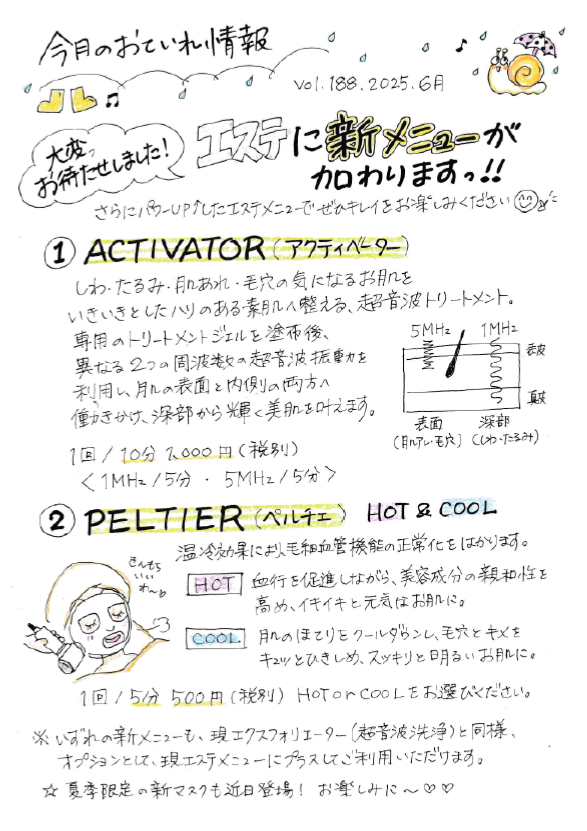 今月のおていれ情報
vol.188.2025.6月
大変っ
お待たせしました!
エステに新メニューが
加わりますっ!!
さらにパワーUP↑したエステメニューでぜひキレイをお楽しみください
① ACTIVATOR(アクティベーター)
しわ・たるみ・肌あれ・毛穴の気になるお肌を
いきいきとしたハリのある素肌へ整える、超音波トリートメント。
専用のトリートメントジェルを塗布後、
異なる2つの周波数の超音波振動を
利用し、肌の表面と内側の両方へ
働きかけ、深部から輝く美肌を叶えます。
5MHz 1MHz
表皮
真皮
表面 深部
(肌アレ・毛穴) (しわ・たるみ)
1回/10分 1,000円(税別)
<1MHz/5分・5MHz/5分>
② PELTIER(ペルチェ) HOT & COOL
温冷効果により、毛細血管機能の正常化をはかります。
きんもち
いい
わ〜
HOT 血行を促進しながら、美容成分の親和性を
高め、イキイキと元気なお肌に。
COOL 肌のほてりをクールダウンし、毛穴とキメを
キュッとひきしめ、スッキリと明るいお肌に。
1回/5分 500円(税別) HOT or COOLをお選びください。
※いずれの新メニューも、現エクスフォリエーター(超音波洗浄)と同様、
オプションとして、現エステメニューにプラスしてご利用いただけます。
☆夏季限定の新マスクも近日登場! お楽しみに〜♡♡